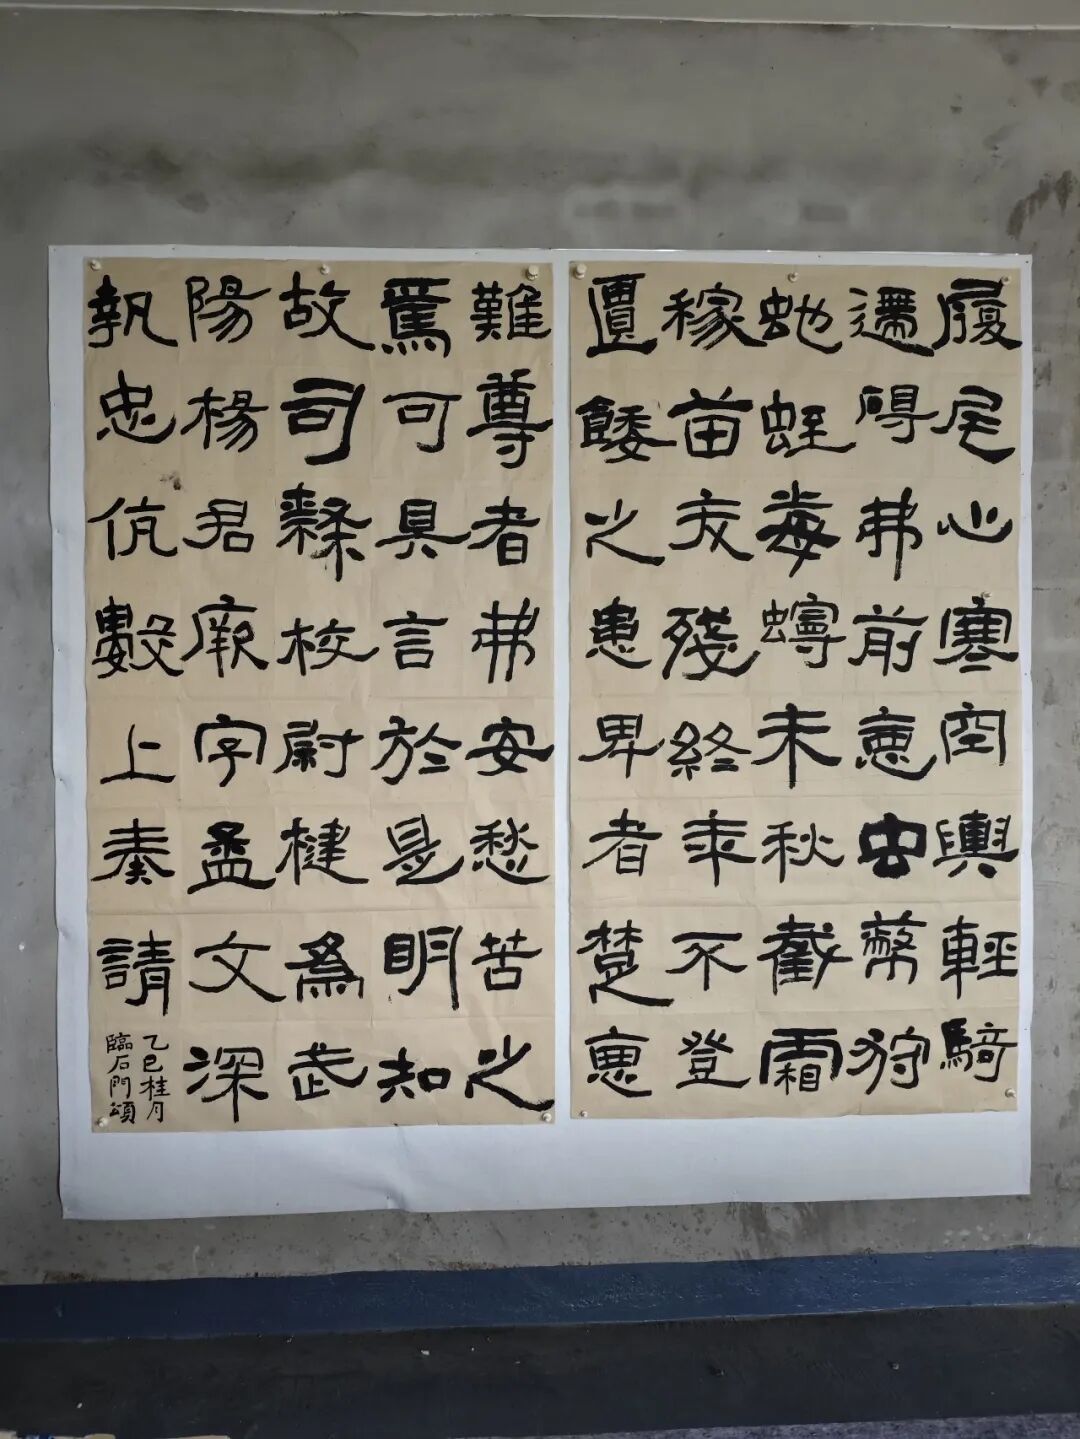 履尾心寒空輿輕騎
遰碍弗前惡虫幣狩
蛇蛭毒蟃未秋截霜
稼苗夭殘終年不登
匱餧之患卑者楚惡
難尊者弗安愁苦之
焉可具言於是明知
故司隸校尉楗為武
陽楊君厥字孟文深
執忠伉數上奏請
乙巳桂月
臨石門頌